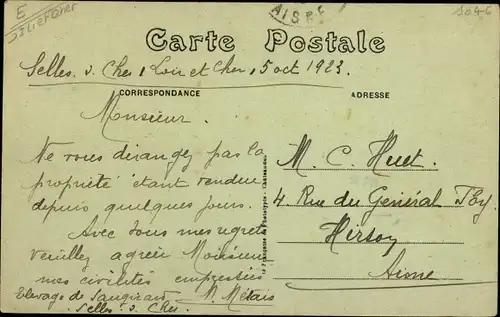 E
AISNE
Carte Postale
Selles s. Cher, Loir et Cher, 5 oct 1923.
CORRESPONDANCE
ADRESSE
Monsieur.
Ne vous dérangez pas la
propriété étant vendue
depuis quelques jours.
Avec tous mes regrets
veuillez agréer Monsieur
mes civilités empressées
M. Métais
Elevage de
Selles s. Cher.
M. C. Huet.
4. Rue du Général Foy.
Hirson
Aisne